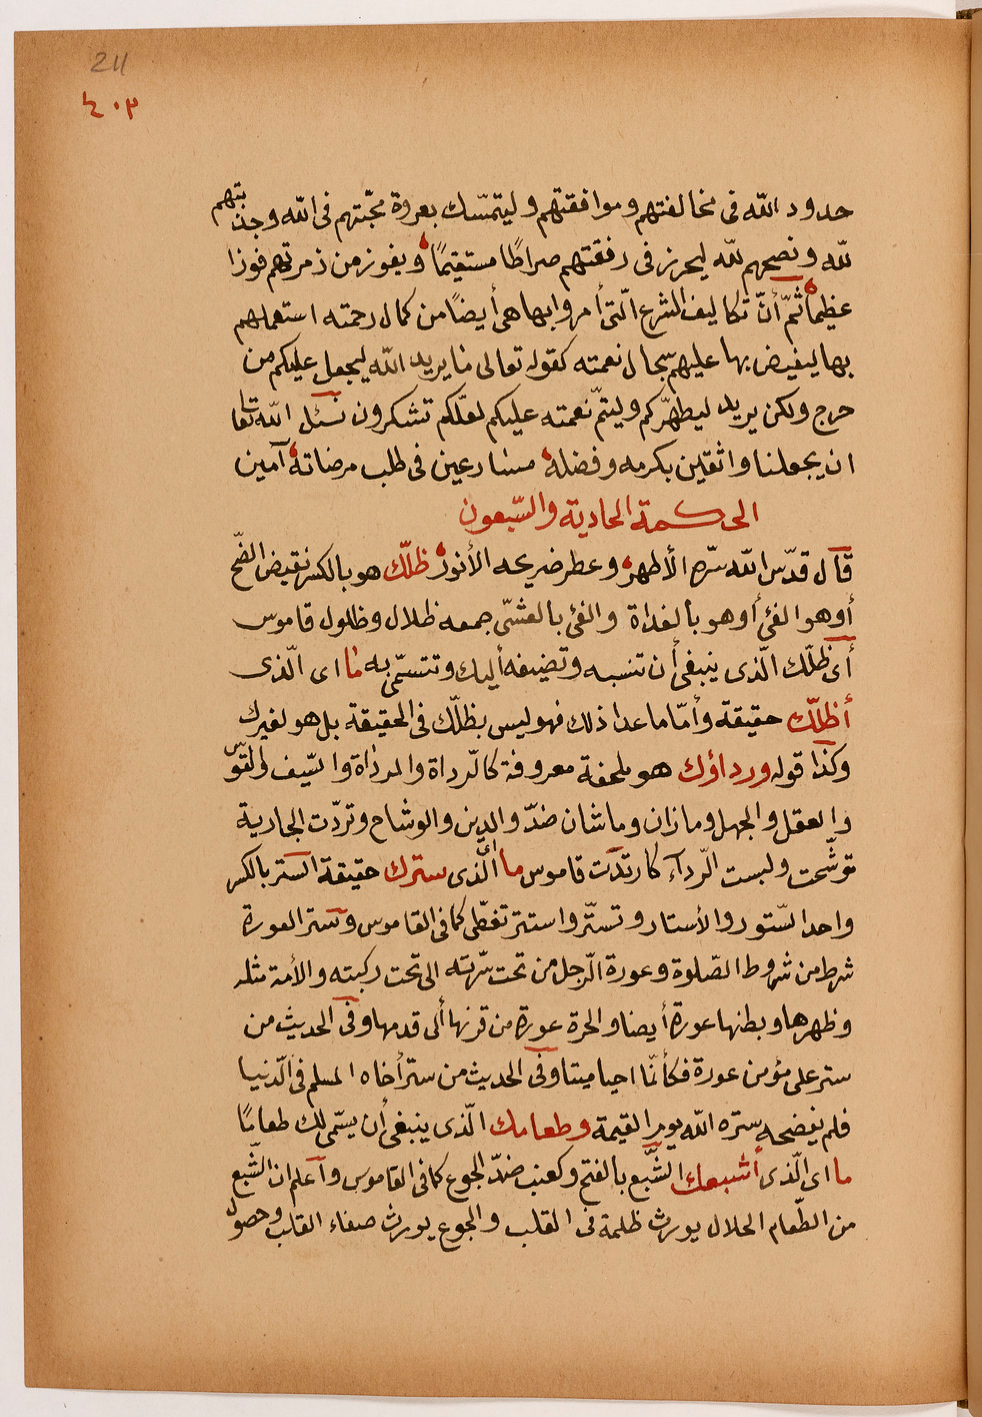 211
٤٠٣
حدود الله فى مخالفتهم وموافقتهم وليتمسّك بعروة محبّتهم فى الله وجذبتهم
لله ونصحهم لله ليحرز فى رفقتهم صراطًا مستقيمًا ويفوز من زمرتهم فوزا
عظيما ثمّ أنّ تكاليف الشرع الّتى أمروا بها هى أيضًا من كمال رحمته استعملهم
بها ليفيض بها عليهم سجال نعمته كقوله تعالى ما يريد الله ليجعل عليكم من
حرج ولكن يريد ليطهّركم وليتمّ نعمته عليكم لعلّكم تشكرون نسئل الله تعالى
ان يجعلنا واثقين بكرمه وفضله مسارعين فى طلب مرضاته آمين
الحكمة الحادية والسّبعون
قال قدّس الله سرّه الأطهر وعطر ضريحه الأنور ظلّك هو بالكسر نقيض الضّح
أو هو الفئ أو هو بالغداة والفئ بالعشىّ جمعه ظلال وظلول قاموس
أى ظلّك الّذى ينبغى أن تنسبه وتضيفه أليك وتتسمّى به ما اى الّذى
أظلّك حقيقة وأمّا ما عدا ذلك فهو ليس بظلّك فى الحقيقة بل هو لغيرك
وكذا قوله ورداؤك هو ملحفة معروفة كالرّداة والمرداة والسّيف والقوس
والعقل والجهل وما زان وما شان ضدّ والدين والوشاح وتردّت الجارية
توشّحت ولبست الرّدآء كارتدّت قاموس ما اى الّذى سترك حقيقة الستر بالكسر
واحد السّتور والأستار وتستّر واستتر تغطّى كما فى القاموس وستر العورة
شرط من شروط الصّلوة وعورة الرّجل من تحت سّرته الى تحت ركبته والأمة مثله
وظهرها وبطنها عورة أيضا والحرة عورة من قرنها ألى قدمها وفى الحديث من
ستر على مؤمن عورة فكأنّما احيا ميتا وفى الحديث من ستر أخاه المسلم فى الدّنيا
فلم يفضحه ستره الله يوم القيمة وطعامك الّذى ينبغى أن يسمّى لك طعامًا
ما اى الّذى أشبعك الشّبع بالفتح وكعنب ضدّ الجوع كما فى القاموس وآعلم ان الشّبع
من الطّعام الحلال يورث ظلمة فى القلب والجوع يورث صفاء القلب وحصول